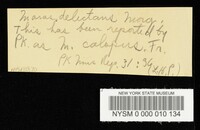 Maras. delectans Morg.
This has been reported by
PK as M. calopus. Fr.
PK Mus Rep. 31:34 (H.P.)
NEW YORK STATE MUSEUM
NYSM 0 000 010 134